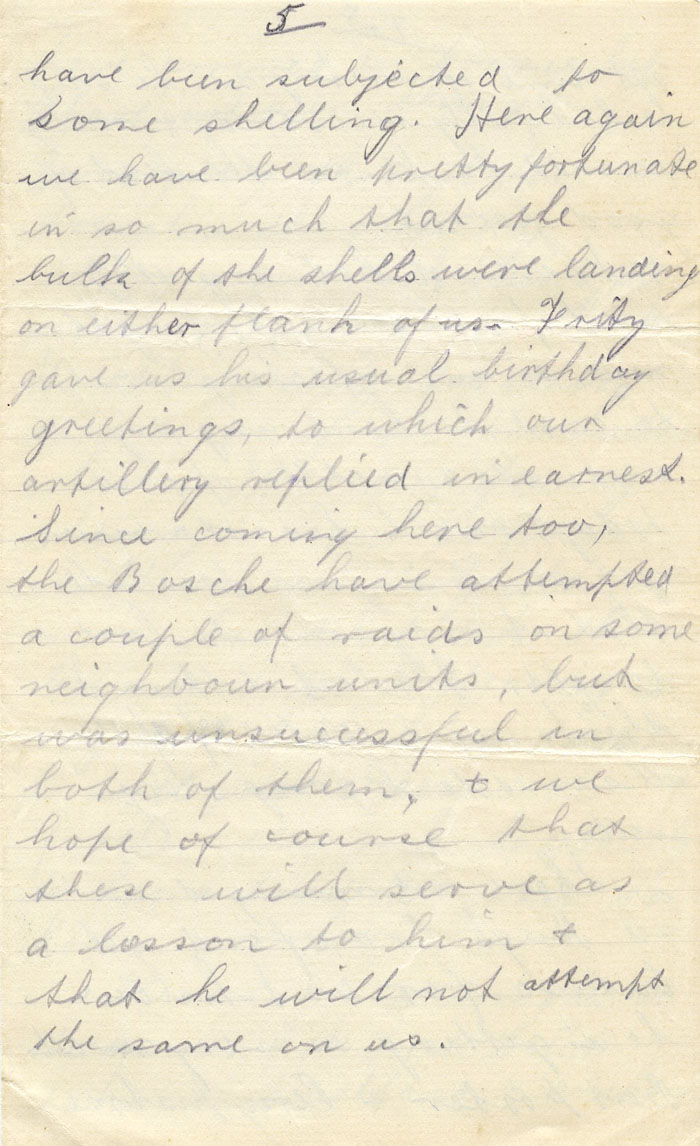 5
have been subjected to
some shelling. Here again
we have been pretty fortunate
in so much that the
bulk of the shells were landing
on either flank of us. Fritz
gave us his usual birthday
greetings, to which our
artillery replied in earnest.
Since coming here too,
the Bosche have attempted
a couple of raids on some
neighbour units, but
was unsuccessful in
both of them, & we
hope of course that
these will serve as
a lesson to him &
that he will not attempt
the same on us.